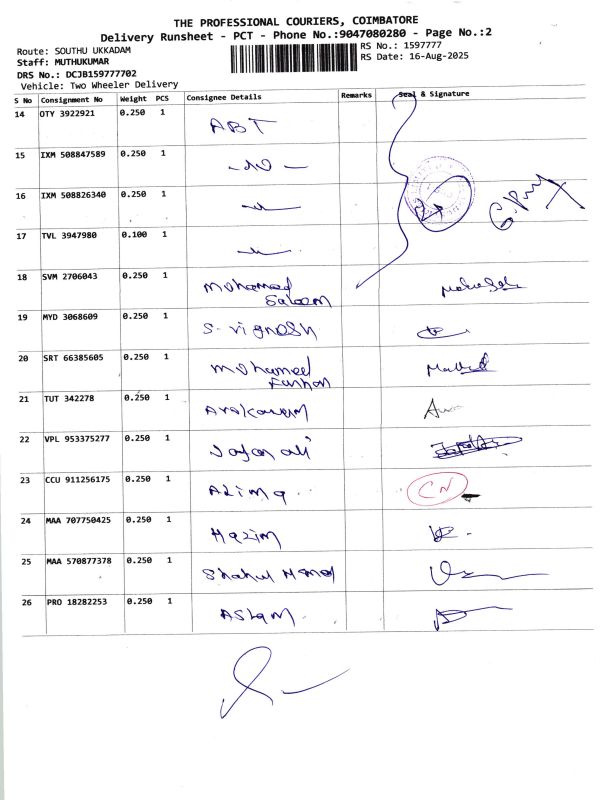 THE PROFESSIONAL COURIERS, COIMBATORE
Delivery Runsheet - PCT - Phone No.:9047080280 - Page No.:2
Route: SOUTHU UKKADAM
RS No.: 1597777
Staff: MUTHUKUMAR
RS Date: 16-Aug-2025
DRS No.: DCJB159777702
Vehicle: Two Wheeler Delivery
S No Consignment No Weight PCS Consignee Details Remarks Seal & Signature
14 OTY 3922921 0.250 1 ABT
15 IXM 508847589 0.250 1
16 IXM 508826340 0.250 1
17 TVL 3947980 0.100 1
18 SVM 2706043 0.250 1 Mohamed
Saleem
19 MYD 3068609 0.250 1 S. Vignesh
20 SRT 66385605 0.250 1 Mohamed
Farhan
21 TUT 342278 0.250 1
22 VPL 953375277 0.250 1 Jafar ali
23 CCU 911256175 0.250 1 Azima CN
24 MAA 707750425 0.250 1 Hazim
25 MAA 570877378 0.250 1 Shahul
26 PRO 18282253 0.250 1 Aslam